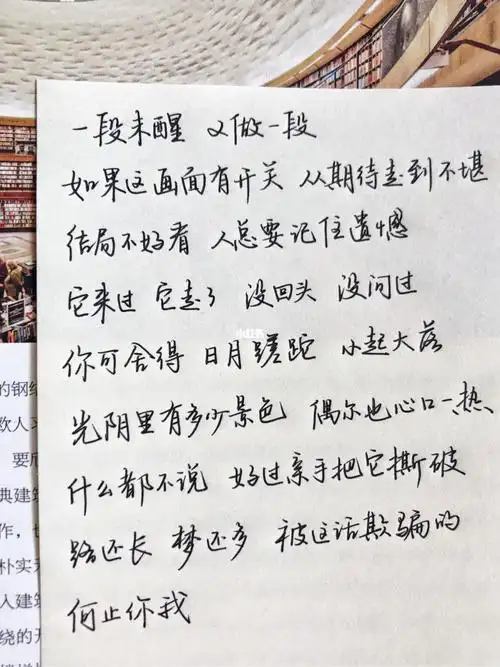 一段未醒 又做一段
如果这画面有开关 从期待走到不堪
结局不好看 人总要记住遗憾
它来过 它走了 没回头 没问过
小红书
你可舍得 日月蹉跎 小起大落
光阴里有多少景色 偶尔也心口一热
什么都不说 好过亲手把它撕破
路还长 梦还多 被这话欺骗的
何止你我
的钢结
欧人习
要欣
典建筑
作，也
朴实无
人建筑
绕的开